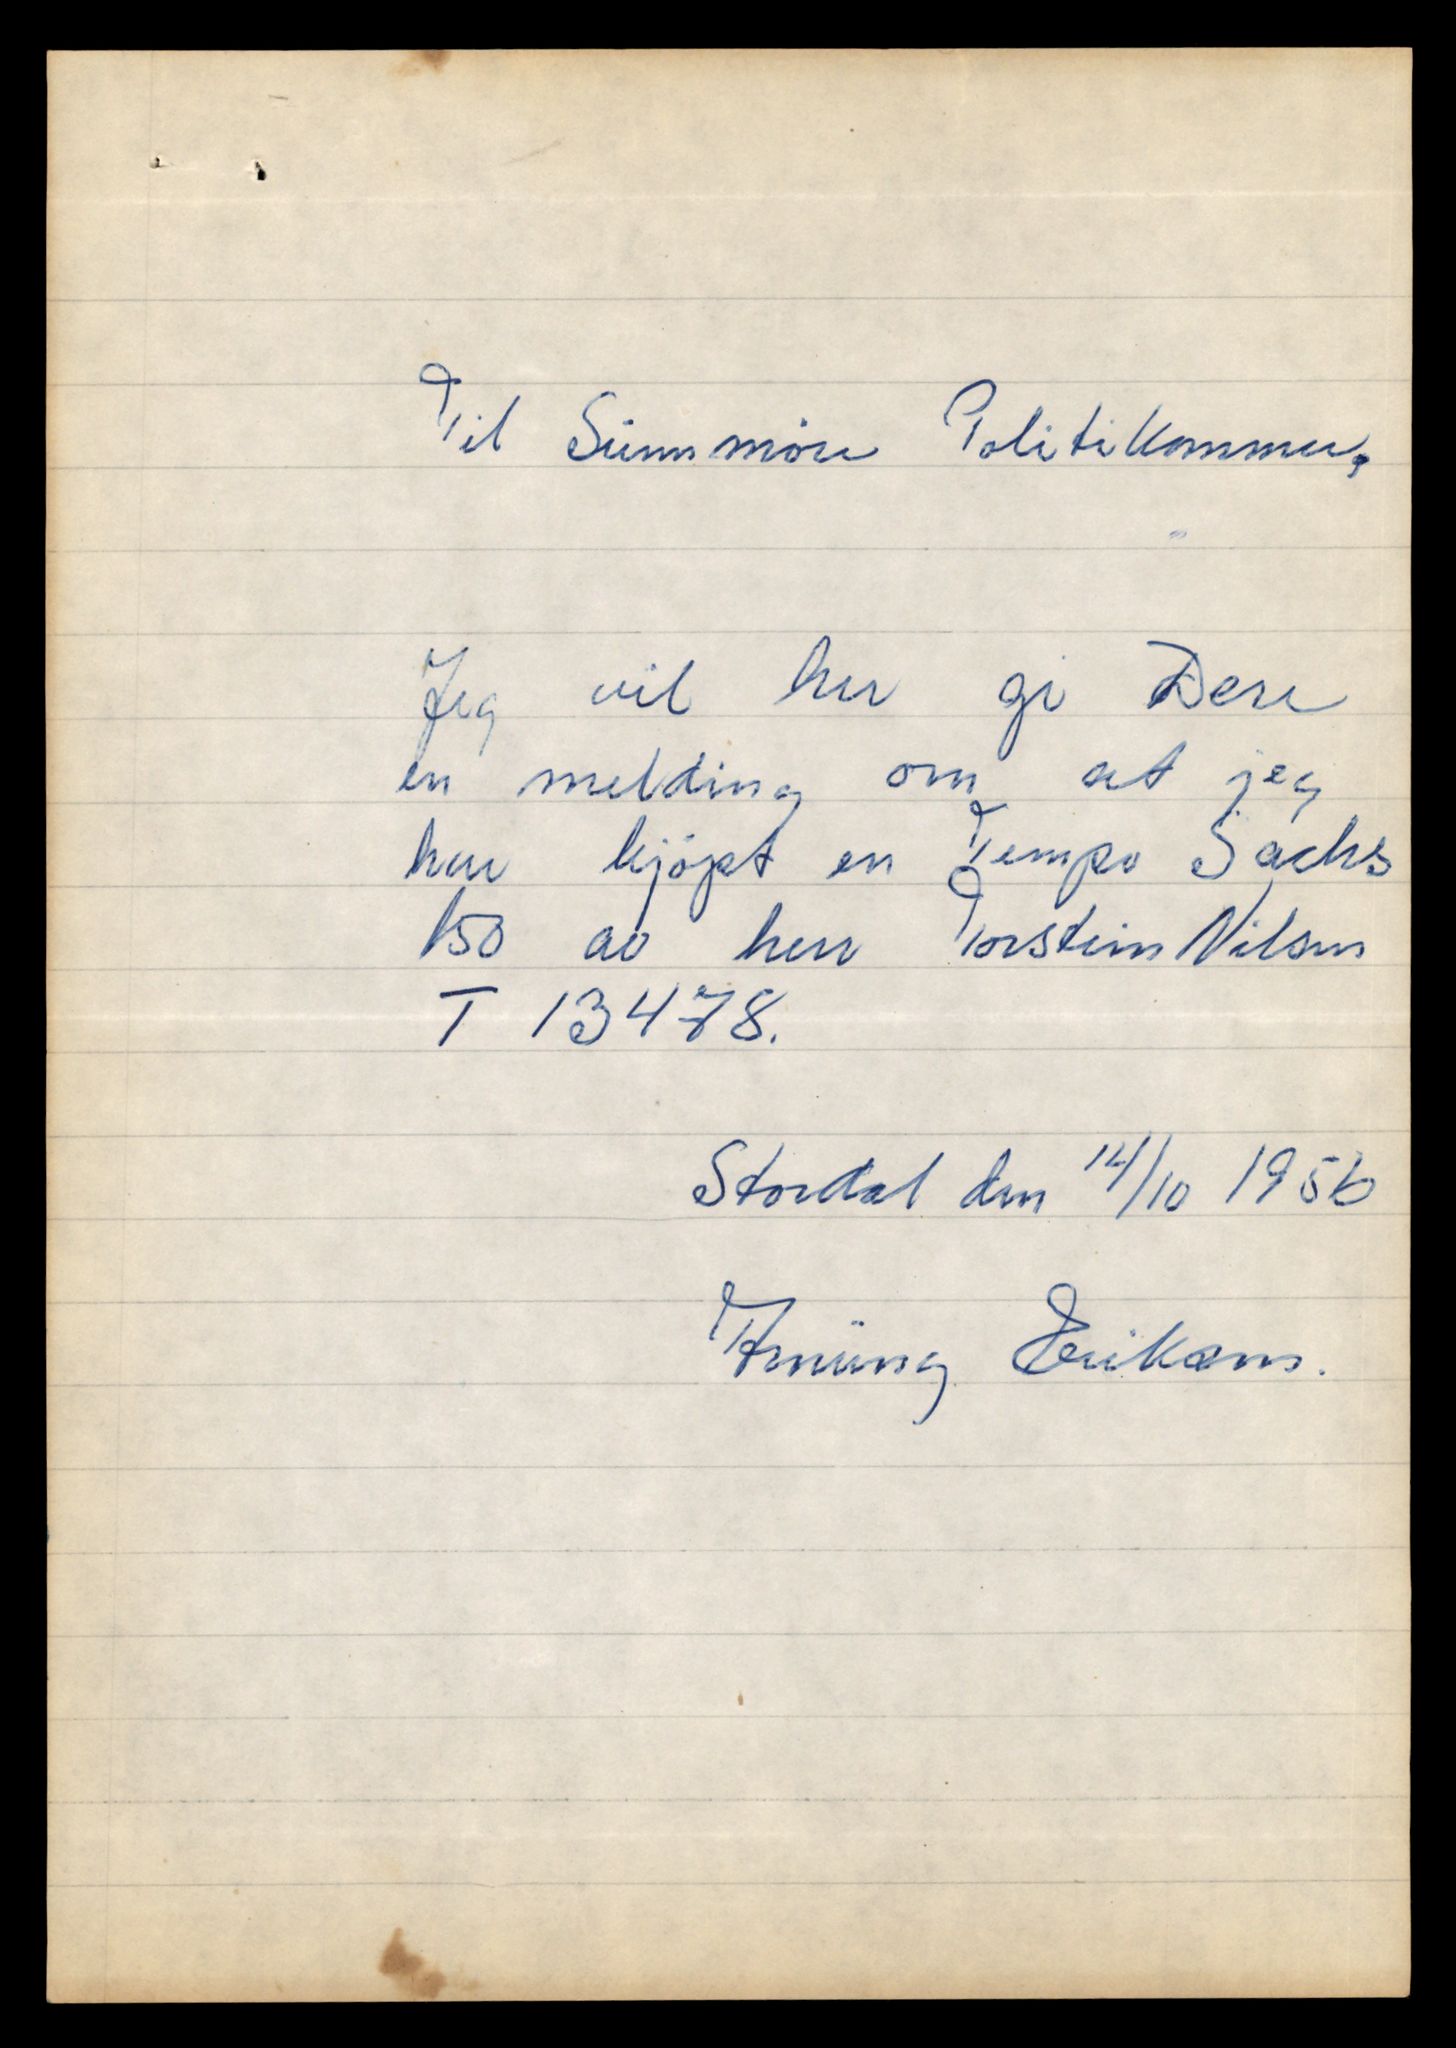 Til Sunnmöre Politikammer,
Jeg vil her gi Dere
en melding om at jeg
har kjöpt en Tempo Sachs
150 av herr Torstein Nilsen
T 13478.
Stordal den 14/10 1956
Eriksen.